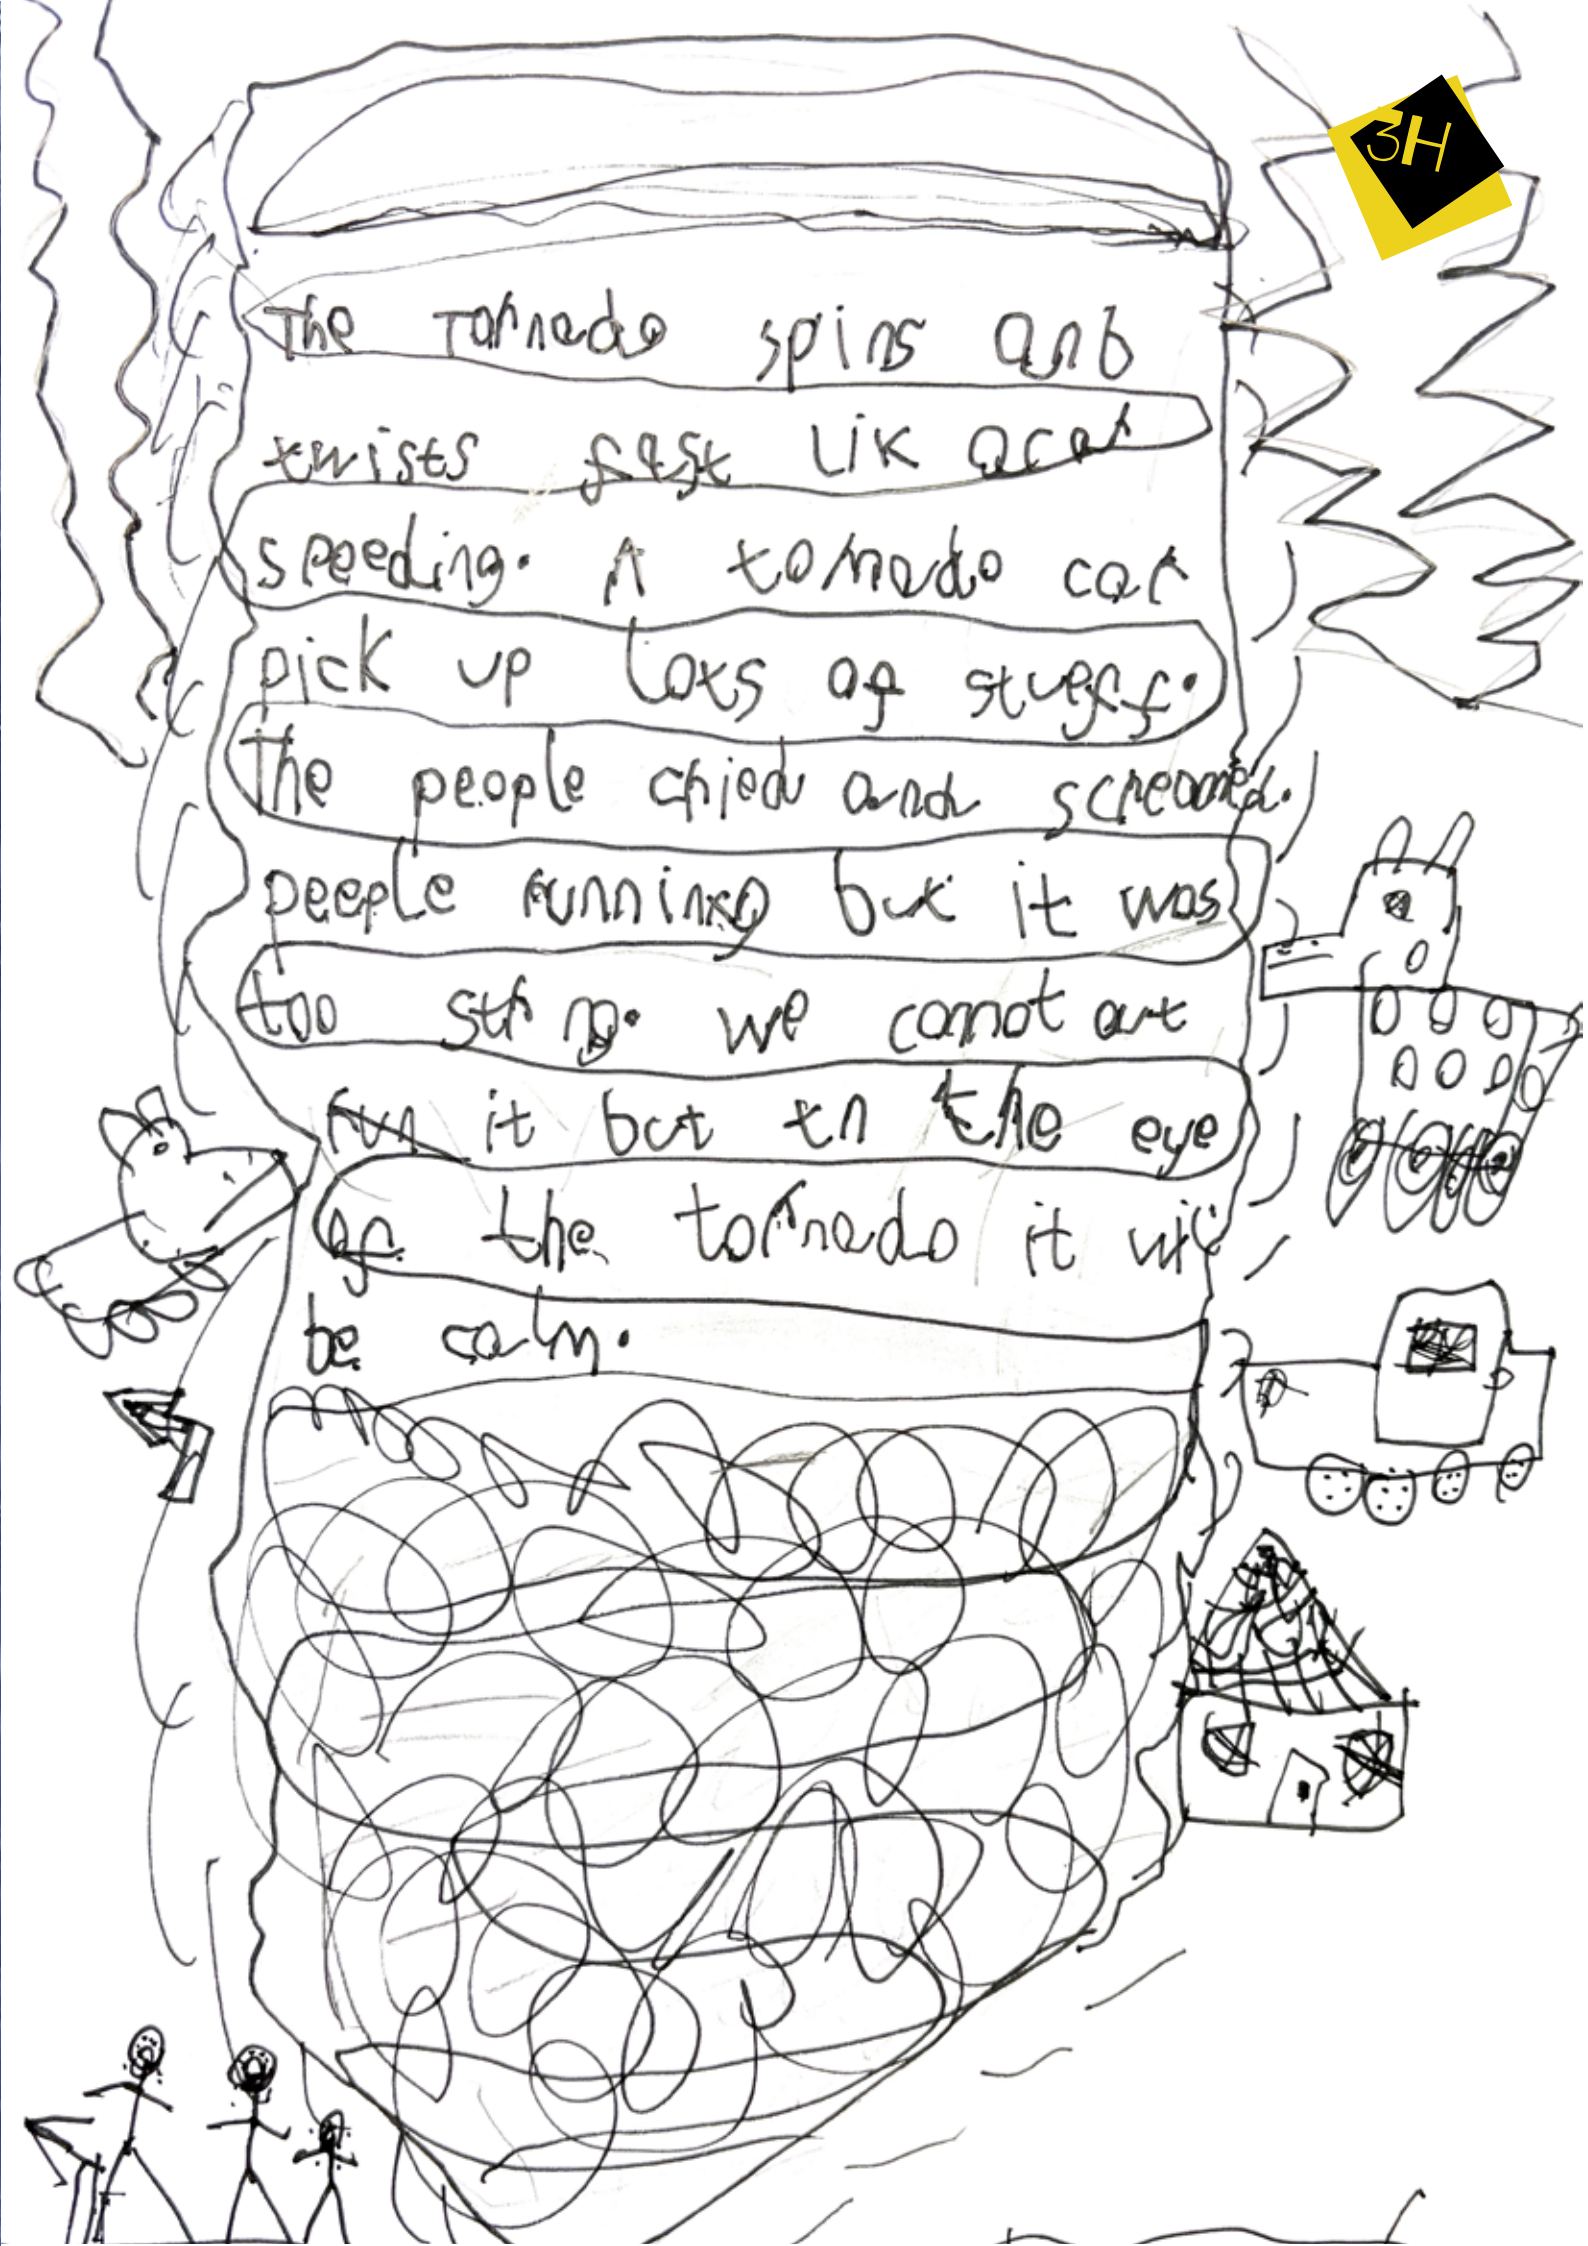 3H
The Tornado spins anb
twists fast Lik a car
speeding. A tornado car
pick up Lots of stueff.
The people chied and screamed.
peeple running but it was
too strng. we cannot out
run it but in the eye
of the tornado it wil
be calm.